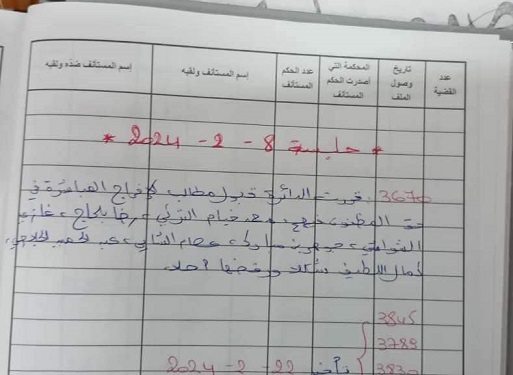 عدد القضية
تاريخ وصول الملف
المحكمة التي أصدرت الحكم المستأنف
عدد الحكم المستأنف
إسم المستأنف ولقبه
إسم المستأنف ضده ولقبه
* جلسة 8 - 2 - 2024 *
3670: قررت الدائرة قبول مطالب الإفراج المباشرة في
حق المظنون فيهم خيام التركي رضا بالحاج، غازي
الشواشي، جوهر بن مبارك، عصام الشابي، عبد الحميد الجلاصي،
كمال اللطيف شكلا ورفضها أصلا
3845
3789
3830
22 - 2 - 2024